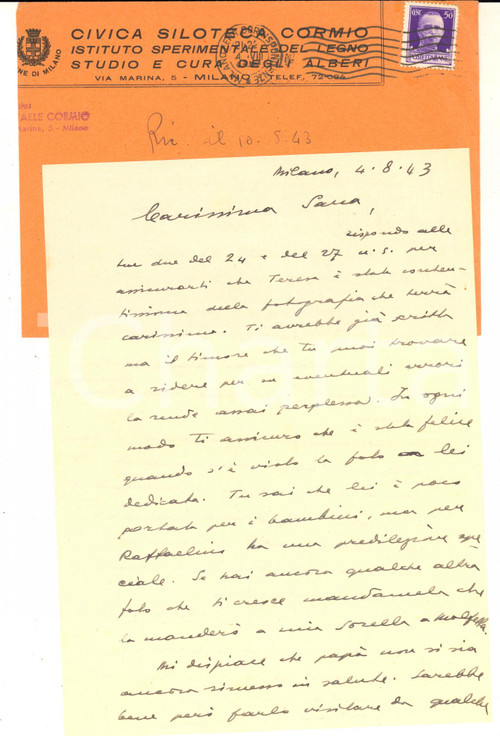 CIVICA SILOTECA CORMIO
ISTITUTO SPERIMENTALE DEL LEGNO
STUDIO E CURA DEGLI ALBERI
VIA MARINA, 5 - MILANO - TELEF. 72-084
NE DI MILANO
50
AELE CORMIO
Marina, 5 - Milano
Ric. il 10.8.43
Milano, 4.8.43
Carissima Sara,
rispondo alle
tue due del 24 e del 27 u.s. per
assicurarti che Teresa è stata conten-
tissima della fotografia che terrà
carissima. Ti avrebbe già scritto
ma il timore che tu puoi trovare
a ridere per su eventuali errori
la rende assai perplessa. In ogni
modo ti assicuro che è stata felice
quando s'è visto la foto a lei
dedicata. Tu sai che lei è poco
portata per i bambini, ma per
Raffaelino ha una predilezione spe
ciale. Se hai ancora qualche altra
foto che ti cresce mandamela che
la manderò a mia sorella a Molfetta.
Mi dispiace che papà non si sia
ancora rimesso in salute. Sarebbe
bene però farlo visitare da qualche